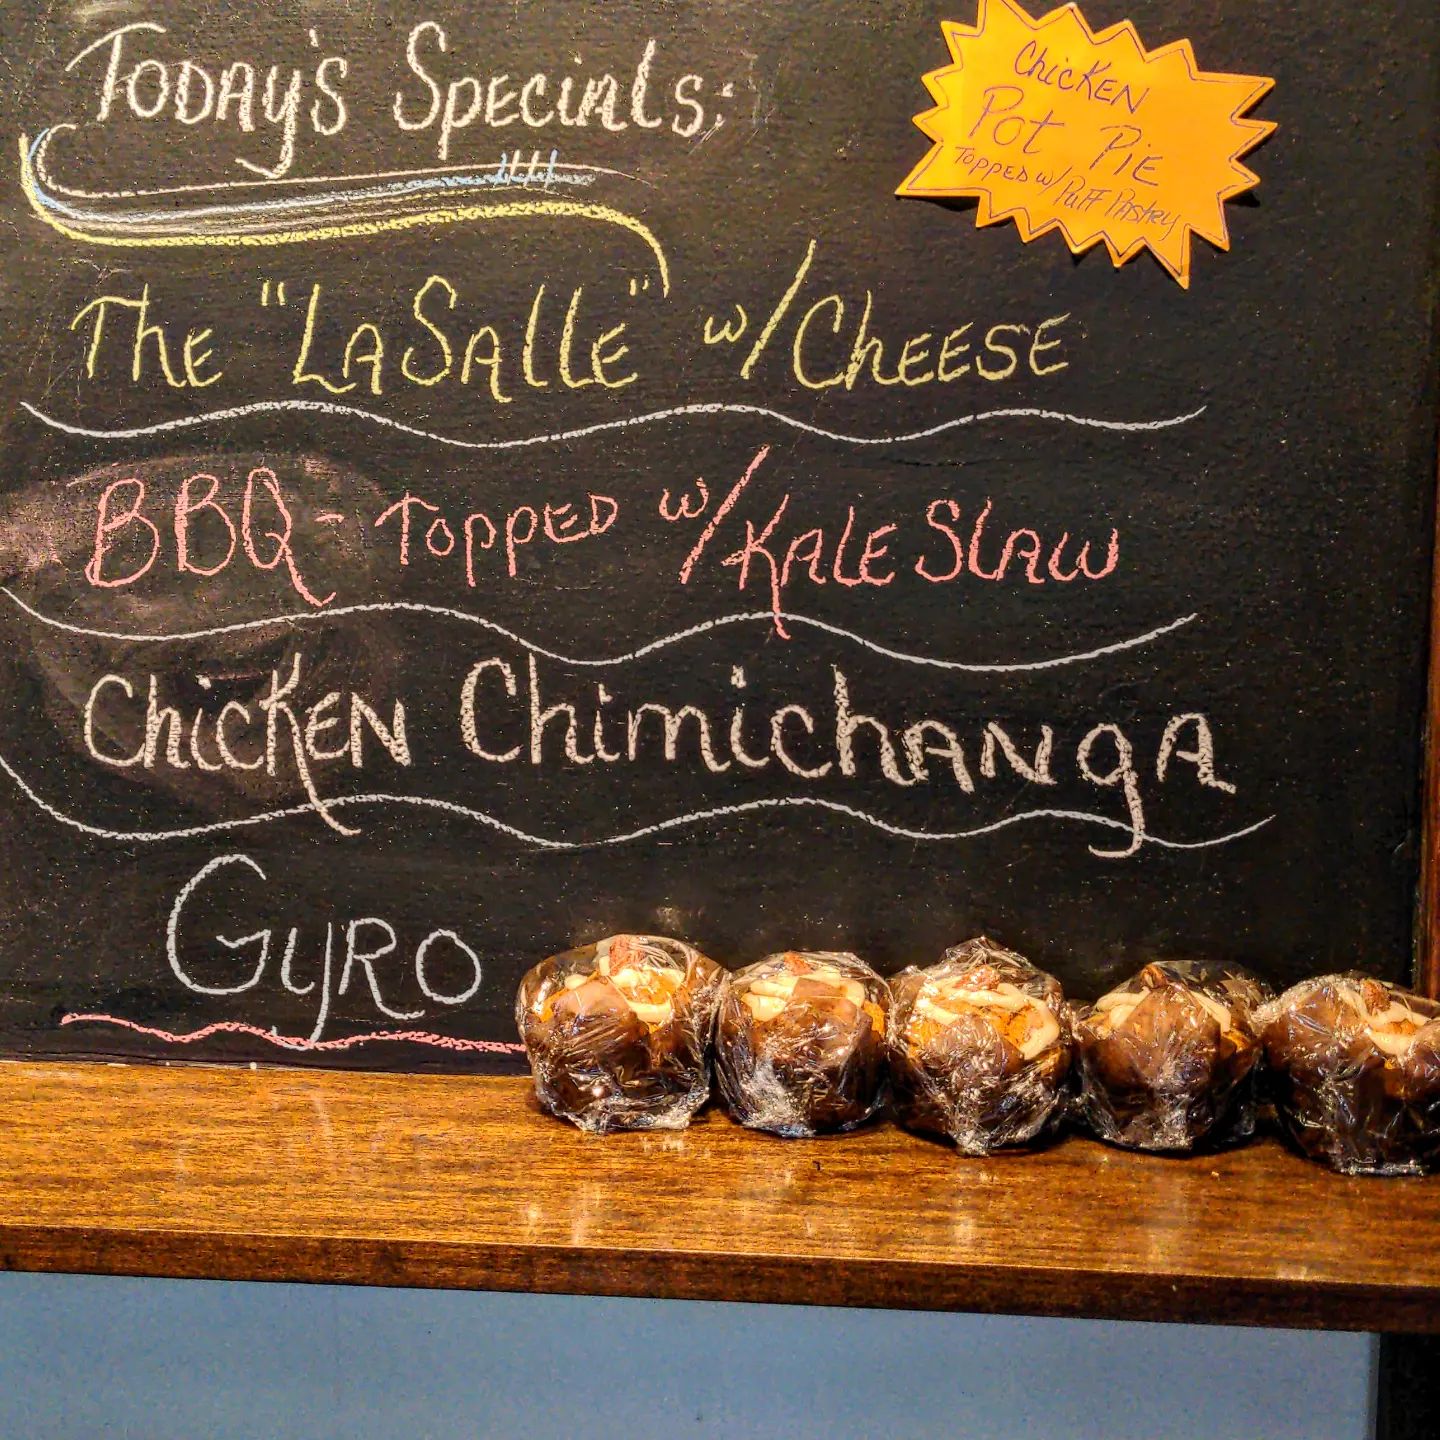 Today's Specials:
Chicken
Pot Pie
Topped w/ Puff Pastry
The "LaSalle" w/ Cheese
BBQ - Topped w/ Kale Slaw
Chicken Chimichanga
Gyro